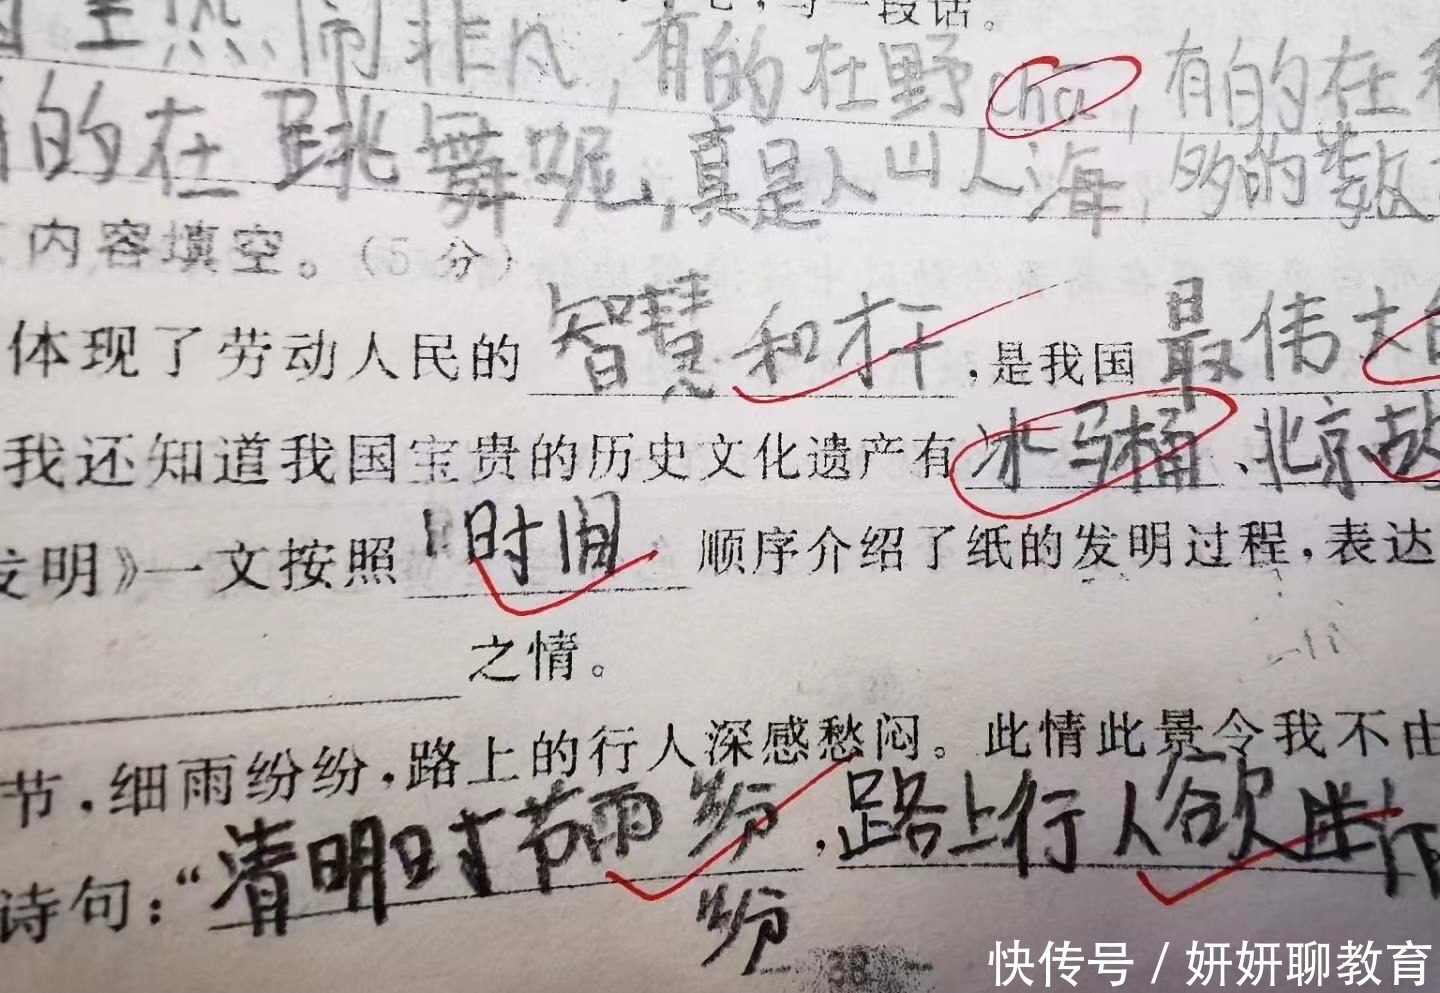 写一段话。
里热闹非凡,有的在野cha,有的在
的在跳舞呢,真是人山人海,多的数
内容填空。(5分)
体现了劳动人民的智慧和才干,是我国最伟大的
我还知道我国宝贵的历史文化遗产有冰马桶、北京故
发明》一文按照时间顺序介绍了纸的发明过程,表达
之情。
节,细雨纷纷,路上的行人深感愁闷。此情此景令我不由
诗句:“清明时节雨纷纷,路上行人欲断
38
快传号/妍妍聊教育